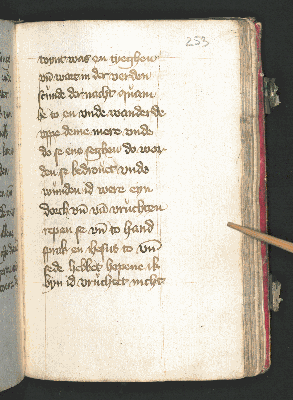 253
wynt was en theghen
vn̄ warem der verden
stunde der nacht quam
he to en vnde wanderde
vppe deme mere vnde
do se ene seghen do wor
den se bedrouet vnde
wūnden id were eyn
droch vn̄ van vruchten
repen se vn̄ to hand
sprak en ihesus to vn̄
sede hebbet hopene ik
byn id vruchtet nicht